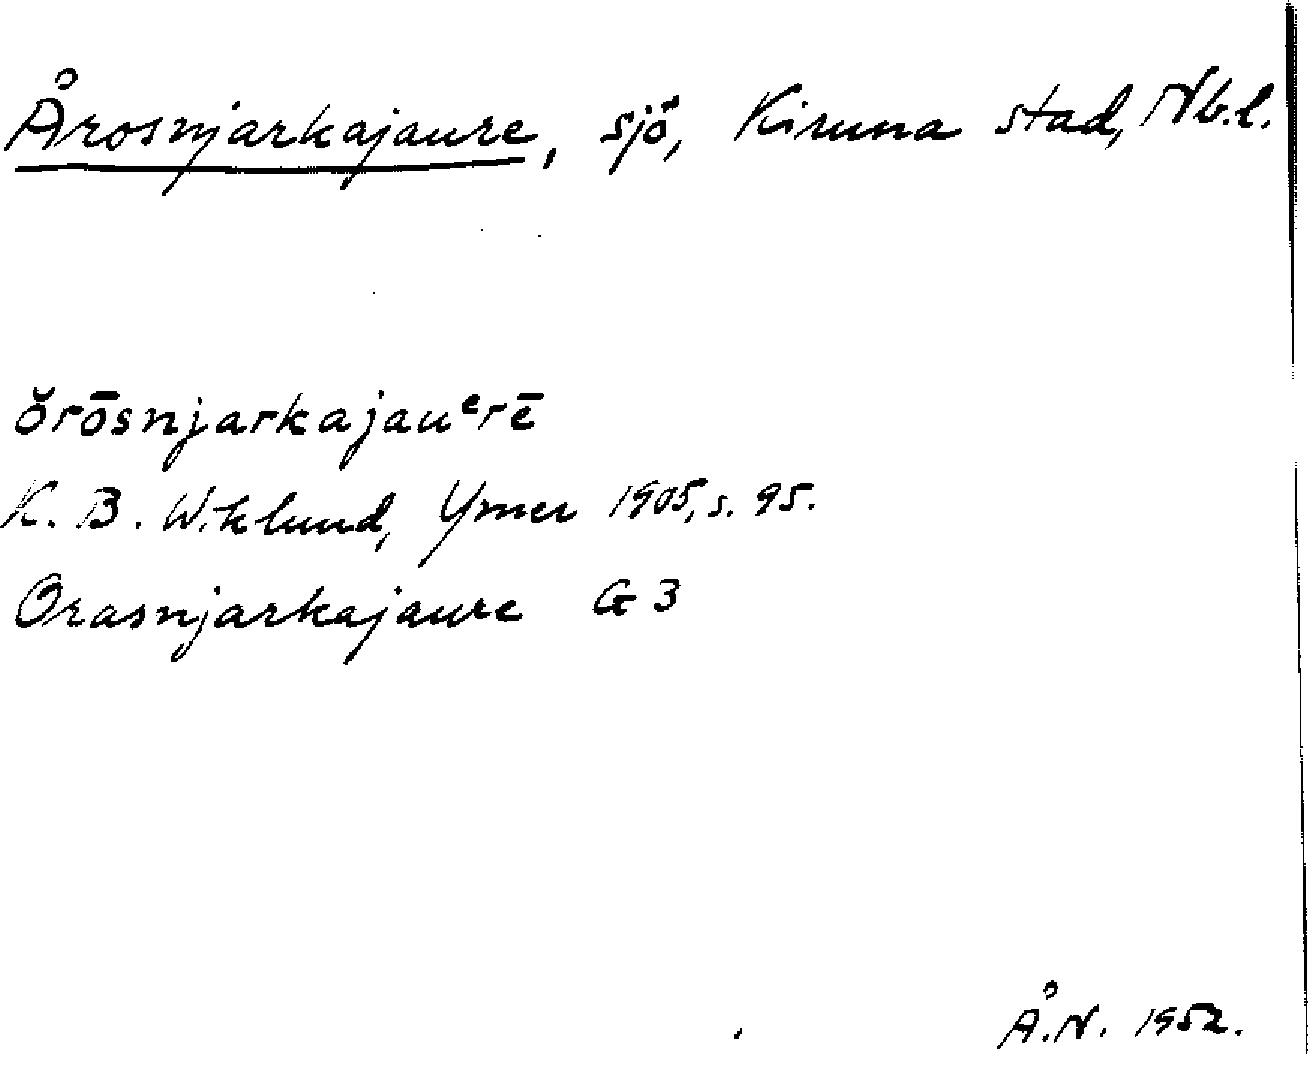 Årosnjarkajaure, sjö, Kiruna stad, Nb.l.
ŏrōsnjarkajauᵉrē
K. B. Wiklund, Ymer 1905, s. 95.
Orasnjarkajaure G 3
Å.N. 1952.